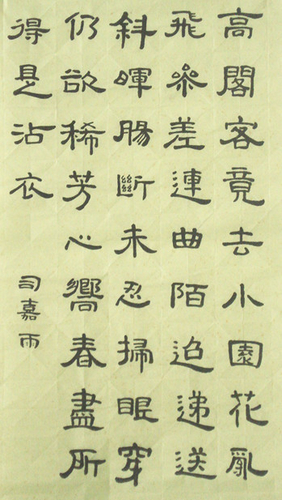 高閣客竟去小園花亂
飛參差連曲陌迢递送
斜暉腸斷未忍掃眼穿
仍欲稀芳心嚮春盡所
得是沾衣
司嘉雨